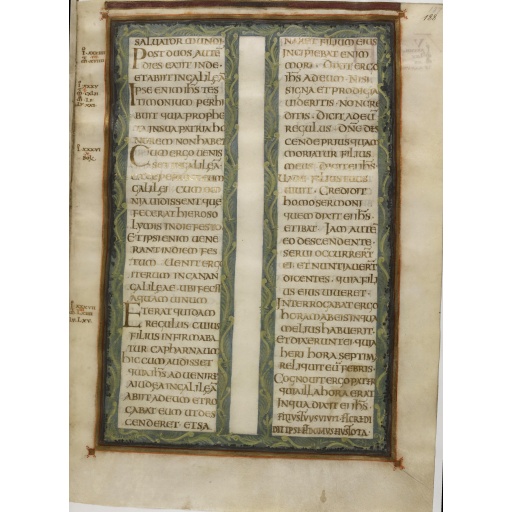 188
SALUATOR MUNDI
POST DUOS AUTĒ
DIES EXIIT INDE
ET ABIIT IN GALILEĀ
IPSE ENIM IHS TES
TIMONIUM PERHI
BUIT QUIA PROPHE
TA IN SUA PATRIA HO
NOREM NON HABET
CUM ERGO UENIS
SET IN GALILEĀ
EXCEPERUNT EUM
GALILEI CUM OM
NIA UIDISSENT QUE
FECERAT HIEROSO
LYMIS IN DIE FESTO
ET IPSI ENIM UENE
RANT IN DIEM FES
TUM UENIT ERGO
ITERUM IN CANAN
GALILEAE UBI FECIT
AQUAM UINUM
ERAT QUIDAM
REGULUS CUIUS
FILIUS INFIRMABA
TUR CAPHARNAUM
HIC CUM AUDISSET
QUIA IHS ADUENIRET
A IUDEA IN GALILEĀ
ABIIT AD EUM ET RO
GABAT EUM UT DES
CENDERET ET SA
NARET FILIUM EIUS
INCIPIEBAT ENIM
MORI DIXIT ERGO
IHS AD EUM NISI
SIGNA ET PRODIGIA
UIDERITIS NON CRE
DITIS DICIT AD EUM
REGULUS DNE DES
CENDE PRIUS QUAM
MORIATUR FILIUS
MEUS DICIT EI IHS
UADE FILIUS TUUS
UIUIT CREDIDIT
HOMO SERMONI
QUEM DIXIT EI IHS
ET IBAT IAM AUTĒ
EO DESCENDENTE
SERUI OCCURRERT
EI ET NUNTIAUERT
DICENTES QUIA FILI
US EIUS UIUERET
INTERROGABAT ERGO
HORAM AB EIS IN QUA
MELIUS HABUERIT
ET DIXERUNT EI QUIA
HERI HORA SEPTIMA
RELIQUIT EŪ FEBRIS
COGNOUIT ERGO PATER
QUIA ILLA HORA ERAT
IN QUA DIXIT EI IHS
FILIUS TUUS UIUIT ET CREDI
DIT IPSE ET DOMUS EIUS TOTA